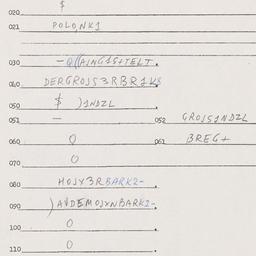 020 $
021 POLO,NK1
030 -O((AING1S+TELT.
040 DERGROJS3RBR1K8
050 $ )1NDZL
051 — 052 GROJS1NDZL
060 O 061 BREG+
070 O
080 HOJY3RBARK2-.
090 )AVDEMOJYNBARK2-.
100 O
110 O